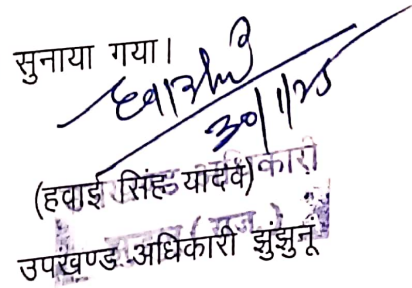 सुनाया गया।
30/1/25
(हवाई सिंह यादव)
उपखण्ड अधिकारी झुंझुनूं